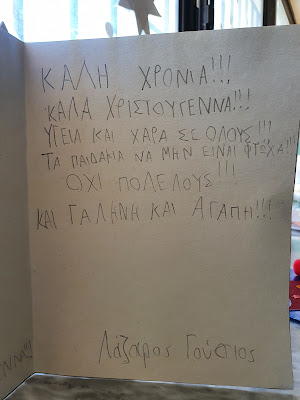 ΚΑΛΗ ΧΡΟΝΙΑ!!!
ΚΑΛΑ ΧΡΙΣΤΟΥΓΕΝΝΑ!!!
ΥΓΕΙΑ ΚΑΙ ΧΑΡΑ ΣΕ ΟΛΟΥΣ!!!
ΤΑ ΠΑΙΔΑΚΙΑ ΝΑ ΜΗΝ ΕΙΝΑΙ ΦΤΩΧΑ!!!
ΟΧΙ ΠΟΛΕΛΟΥΣ!!!
ΚΑΙ ΓΑΛΗΝΗ ΚΑΙ ΑΓΑΠΗ!!!
ΝΝΑ!!
Λάζαρος